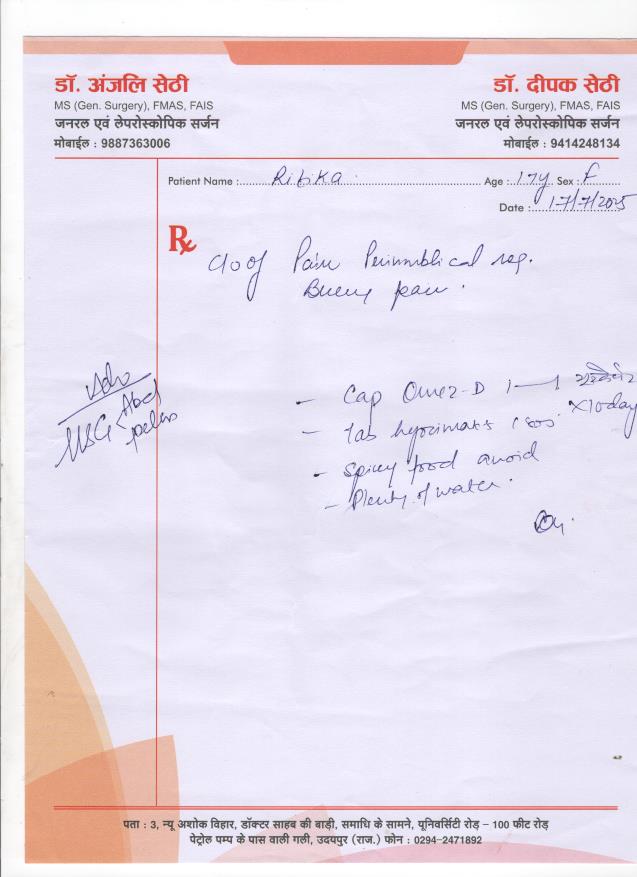 डॉ. अंजलि सेठी
MS (Gen. Surgery), FMAS, FAIS
जनरल एवं लेपरोस्कोपिक सर्जन
मोबाईल : 9887363006
डॉ. दीपक सेठी
MS (Gen. Surgery), FMAS, FAIS
जनरल एवं लेपरोस्कोपिक सर्जन
मोबाईल : 9414248134
Patient Name : Ritika Age : 17y Sex : F
Date : 17/7/2025
Rx
c/o of Pain Periumblical reg.
pain.
Adv
USG Abd
pelvis
- Cap Omez-D 1—1 x10day
- Tab SOS
- Spicy food avoid
- Plenty of water.
पता : 3, न्यू अशोक विहार, डॉक्टर साहब की बाड़ी, समाधि के सामने, यूनिवर्सिटी रोड़ – 100 फीट रोड़
पेट्रोल पम्प के पास वाली गली, उदयपुर (राज.) फोन : 0294-2471892